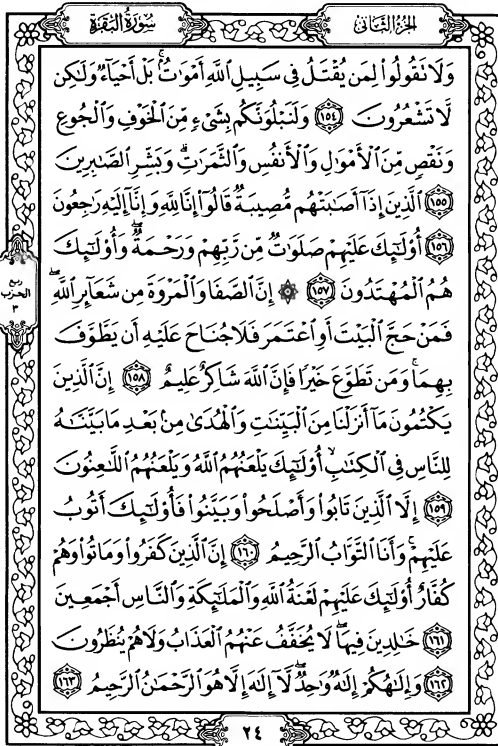 سُورَةُ البَقَرَةِ
الجُزْءُ الثَّانِي
وَلَا تَقُولُوا۟ لِمَن يُقْتَلُ فِى سَبِيلِ ٱللَّهِ أَمْوَٰتٌۢ ۚ بَلْ أَحْيَآءٌ وَلَٰكِن
لَّا تَشْعُرُونَ ١٥٤ وَلَنَبْلُوَنَّكُم بِشَىْءٍ مِّنَ ٱلْخَوْفِ وَٱلْجُوعِ
وَنَقْصٍ مِّنَ ٱلْأَمْوَٰلِ وَٱلْأَنفُسِ وَٱلثَّمَرَٰتِ ۗ وَبَشِّرِ ٱلصَّٰبِرِينَ
١٥٥ ٱلَّذِينَ إِذَآ أَصَٰبَتْهُم مُّصِيبَةٌ قَالُوٓا۟ إِنَّا لِلَّهِ وَإِنَّآ إِلَيْهِ رَٰجِعُونَ
١٥٦ أُو۟لَٰٓئِكَ عَلَيْهِمْ صَلَوَٰتٌ مِّن رَّبِّهِمْ وَرَحْمَةٌ ۖ وَأُو۟لَٰٓئِكَ
هُمُ ٱلْمُهْتَدُونَ ١٥٧ ۞ إِنَّ ٱلصَّفَا وَٱلْمَرْوَةَ مِن شَعَآئِرِ ٱللَّهِ ۖ
فَمَنْ حَجَّ ٱلْبَيْتَ أَوِ ٱعْتَمَرَ فَلَا جُنَاحَ عَلَيْهِ أَن يَطَّوَّفَ
بِهِمَا ۚ وَمَن تَطَوَّعَ خَيْرًا فَإِنَّ ٱللَّهَ شَاكِرٌ عَلِيمٌ ١٥٨ إِنَّ ٱلَّذِينَ
يَكْتُمُونَ مَآ أَنزَلْنَا مِنَ ٱلْبَيِّنَٰتِ وَٱلْهُدَىٰ مِنۢ بَعْدِ مَا بَيَّنَّٰهُ
لِلنَّاسِ فِى ٱلْكِتَٰبِ ۙ أُو۟لَٰٓئِكَ يَلْعَنُهُمُ ٱللَّهُ وَيَلْعَنُهُمُ ٱللَّٰعِنُونَ
١٥٩ إِلَّا ٱلَّذِينَ تَابُوا۟ وَأَصْلَحُوا۟ وَبَيَّنُوا۟ فَأُو۟لَٰٓئِكَ أَتُوبُ
عَلَيْهِمْ ۚ وَأَنَا ٱلتَّوَّابُ ٱلرَّحِيمُ ١٦٠ إِنَّ ٱلَّذِينَ كَفَرُوا۟ وَمَاتُوا۟ وَهُمْ
كُفَّارٌ أُو۟لَٰٓئِكَ عَلَيْهِمْ لَعْنَةُ ٱللَّهِ وَٱلْمَلَٰٓئِكَةِ وَٱلنَّاسِ أَجْمَعِينَ
١٦١ خَٰلِدِينَ فِيهَا ۖ لَا يُخَفَّفُ عَنْهُمُ ٱلْعَذَابُ وَلَا هُمْ يُنظَرُونَ
١٦٢ وَإِلَٰهُكُمْ إِلَٰهٌ وَٰحِدٌ ۖ لَّآ إِلَٰهَ إِلَّا هُوَ ٱلرَّحْمَٰنُ ٱلرَّحِيمُ ١٦٣
ربع
الحزب
٣
٢٤